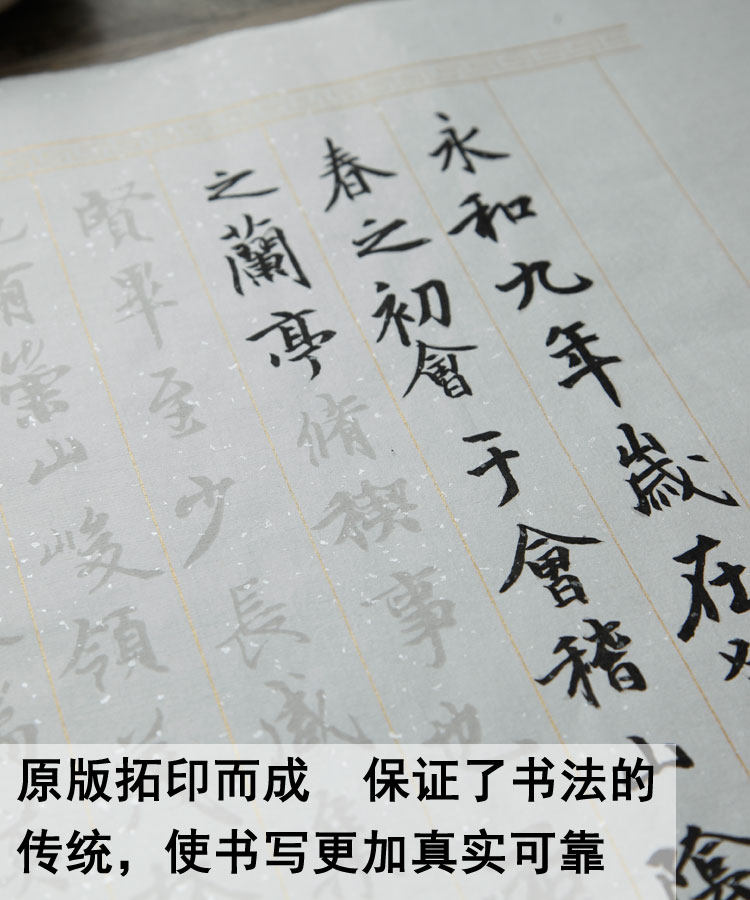 永和九年歲在
春之初會于會稽山陰
之蘭亭脩稧事也
賢畢至少長咸集
有崇山峻領
原版拓印而成 保证了书法的
传统，使书写更加真实可靠